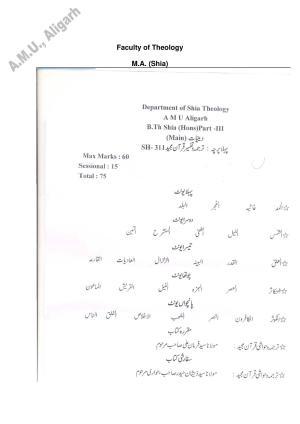 A.M.U., Aligarh
Faculty of Theology
M.A. (Shia)
Department of Shia Theology
A M U Aligarh
B.Th Shia (Hons)Part -III
(Main) دینیات
پہلا پرچہ : ترجمہ و تفسیر قرآن مجید SH- 311
Max Marks : 60
Sessional : 15
Total : 75
پہلا یونٹ
غاشیہ الفجر البلد
دوسرا یونٹ
الشمس اللیل الضحیٰ التین
تیسرا یونٹ
العلق القدر البینہ الزلزال العادیات القارعہ
چوتھا یونٹ
التکاثر العصر الہمزہ الفیل القریش الماعون
پانچواں یونٹ
الکوثر الکافرون النصر اللہب الاخلاص الفلق الناس
مقررہ کتاب
ترجمہ و حواشی قرآن مجید: مولانا سید فرمان علی صاحب مرحوم
سفارشی کتاب
ترجمہ و حواشی قرآن مجید: مولانا سید ذیشان حیدر صاحب جوادی مرحوم